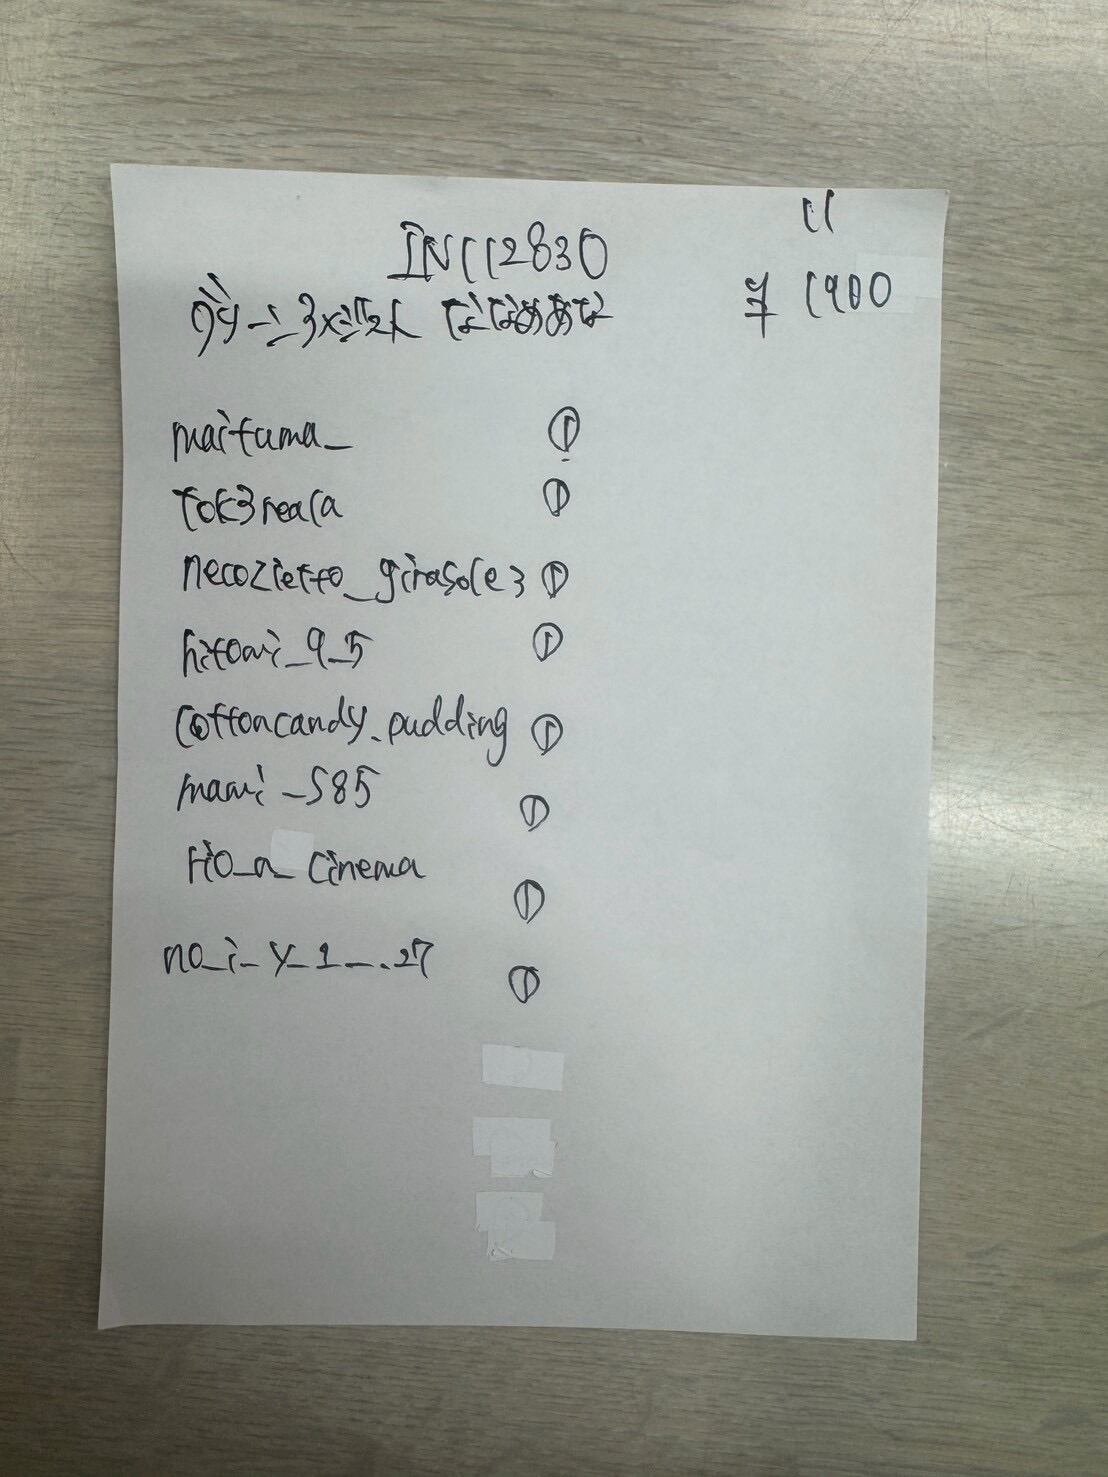 11
IN112830
¥ 1900
maituma_ ①
tok3reala ①
necozietto_girasole3 ①
hitomi_9_5 ①
cottoncandy_pudding ①
mami_585 ①
rio_a_cinema ①
no_i_y_1__.27 ①